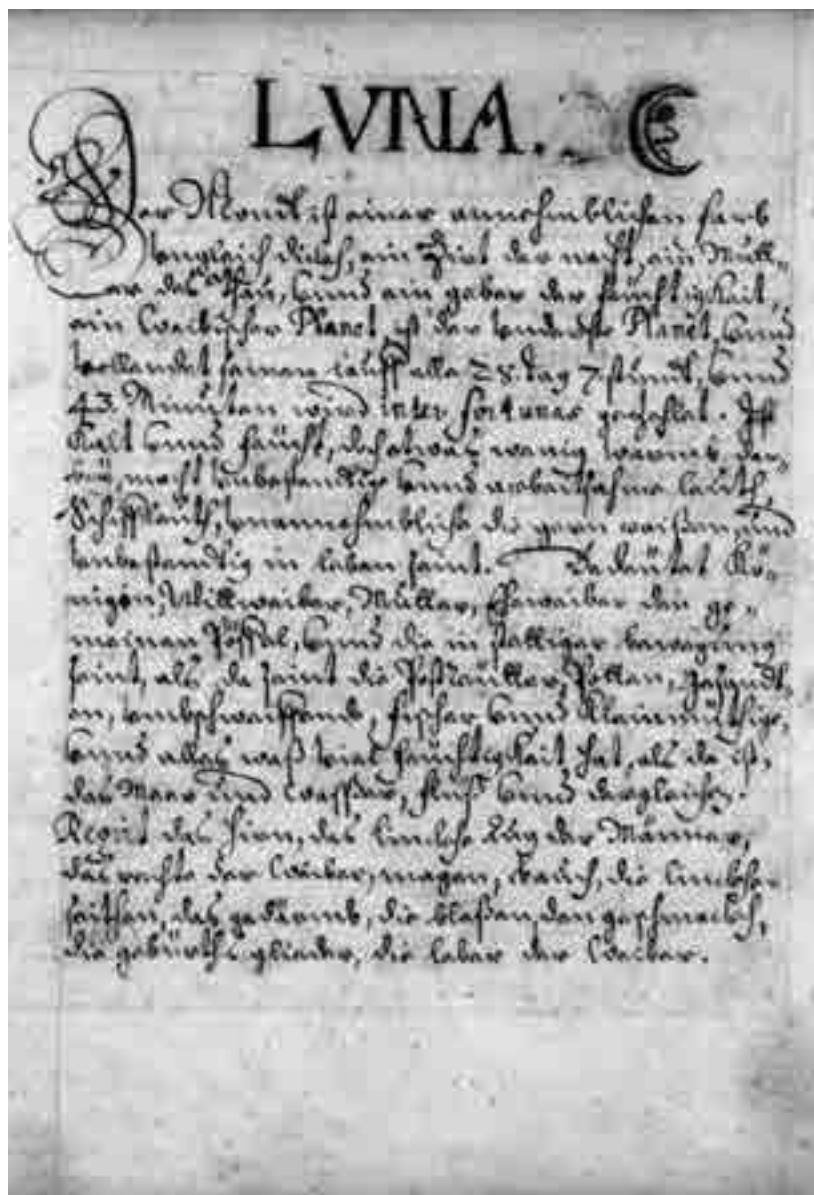 LVNA.
Der Mondt ist einer annehmblichen farb
ungleich dickh, ein Zirt der nacht, ein Mutt-
er des Thau, vnnd ein geber der feüchtigkeit,
ein Weibischer Planet ist der vnderste Planet, vnnd
vollendet seinen lauff alle 28. tag 7. stundt, vnnd
43. Minuten wird inter fortunas gezehlet. Ist
Kalt vnnd feücht, doch etwas wenig warmb, der-
macht vnbestendige vnnd arbeithsame leüth,
Schiffleüth, vnannehmbliche die gern reißen, und
vnbestendig in leben seint. Bedeütet Kö-
nigin, Wittweiber, Mutter, Eheweiber den ge-
meinen Pöffel, vnnd die in stettiger bewegung
seint, als da seint die Postreütter, Potten, gesandt-
en, vmbschweiffend, fischer vnnd Kleinmüthige,
vnnd alles waß viel feüchtigkeit hat, als da ist,
das Meer und wasser, fluß vnnd dergleichen.
Regirt das hirn, das linckhe Aug der Männer,
das rechte der Weiber, magen, bauch, die linckhe
seithen, das gedärmb, die blaßen, den geschmackh,
die gebürths glieder, die leber der Weiber.